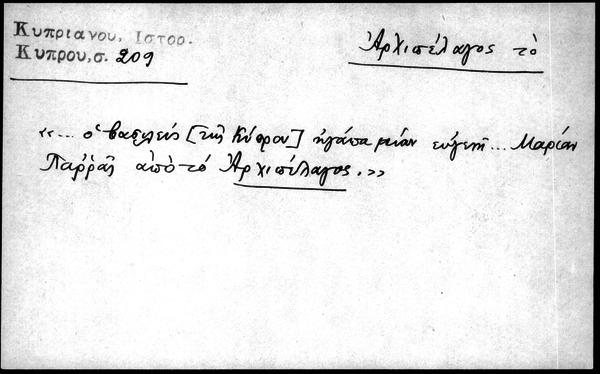 Κυπριανου, Ιστορ.
Κυπρου, σ. 209
Ἀρχιπέλαγος τὸ
«... ὁ βασιλεύς [τῆς Κύπρου] ἠγάπα μίαν εὐγενῆ... Μαρίαν
ἀπὸ τὸ Ἀρχιπέλαγος.»